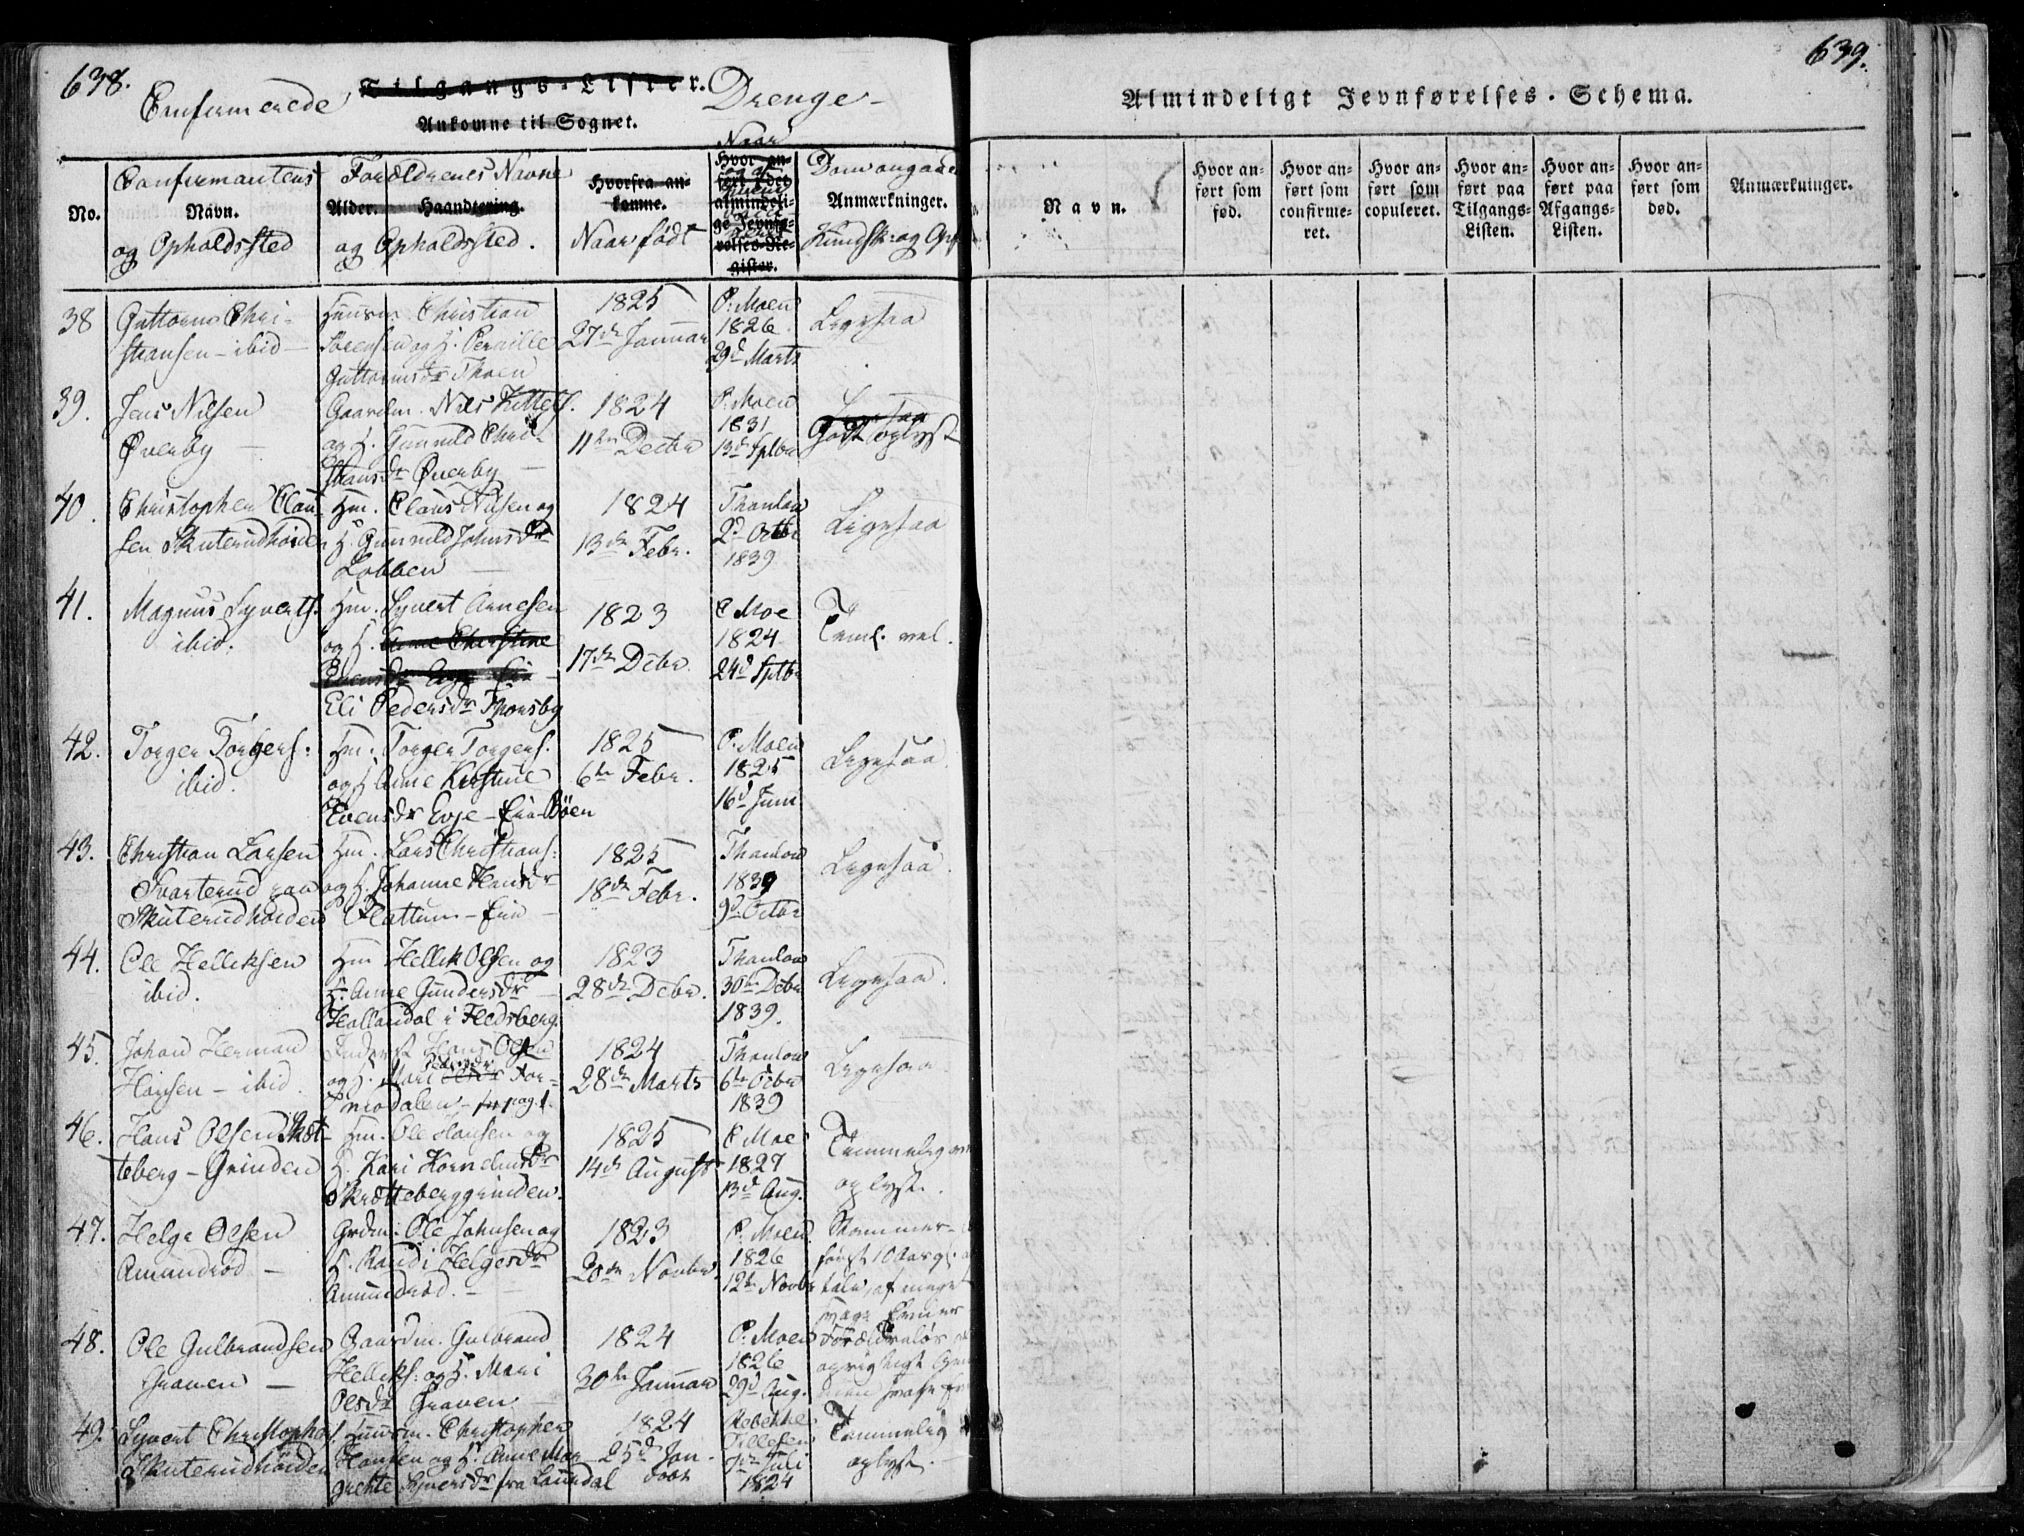 638.
Confirmerede Tilgangs-Lister. Drenge
Ankomne til Sognet.
No.
Confirmantens
Navn.
og Opholdssted
Forældrenes Navne
Alder. Haandtering.
og Opholdssted.
Hvorfra an-
komne.
Naar født
Naar
Hvor an-
ført i det
almindeli-
ge Jevnfø-
relses-Re-
gister.
Dom angaaende
Anmærkninger.
Kundsk. og Opf
38
Guttorm Chri-
stiansen - ibid -
Huusm. Christian
Sørensen og H. Pernille
Guttormsdr Thoen
1825
27de Januar
P. Moen
1826
29d Marts
Ligesaa
39.
Jens Nilsen
Øverby -
Gaardm. Nils Kittels.
og H. Gunnild Chri-
stiansdr Øverby -
1824
11te Decbr
P. Moen
1831
13d Sptbr
Ligesaa
Godt oplyst
40.
Christopher Clau-
sen Skuterudhoiden
Hm. Claus Nilsen og
H. Gunnild Johnsdr
Lobben -
1824
13de Febr.
Thanlow
2d Octbr
1839
Ligesaa
41.
Magnus Syverts.
ibid.
Hm. Syvert Arnesen
og H. Anne Christine
Evensdr Evje Eie
Eli Pedersdr
1823
17de Debr
P Moe
1824
24d Sptbr
Teml. vel.
42.
Torger Torgers:
ibid.
Hm. Torger Torgers.
og H. Anne Kirstine
Evensdr Evje - Eie Böen
1825
6te Febr.
P. Moen
1825
16d Juni
Ligesaa.
43.
Christian Larsen
Svarterud
Skuterudhoiden
Hm. Lars Christians:
og H. Johanne Hansdr
Flattum - Eie -
1825
18de Febr.
Thanlow
1839
9d Octbr
Ligesaa.
44.
Ole Helliksen
ibid.
Hm Hellik Olsen og
H. Anne Gundersdr -
Hallandal i Fledsberg.
1823
28de Debr.
Thanlow
30te Debr
1839.
Ligesaa.
45.
Johan Herman
Hansen - ibid.
Inderst Hans Olsen
og H. Mari For-
modalen - pag. 1.
1824
28de Marts
Thanlow
6te Octbr
1839
Ligesaa.
46.
Hans Olsen Skret-
teberg - Grinden
Hm. Ole Hansen og
H. Kari Korneliusdr
Skretteberggrinden.
1825
14de August
P. Moe
1827
13d Aug.
Temmelig vel
oplyst.
47.
Helge Olsen
Amundrod -
Grdm. Ole Johnsen og
H. Randi Helgesdr
Amundrød. -
1823
20de Novbr.
P. Moen
1826
12te Novbr
Stammer-
først 10 Aar gl.
tale, af meget
svage Evner
48.
Ole Gulbrandsen
Graven -
Gaardm. Gulbrand
Helliks: og H. Mari
Olsdr Graven -
1824
30te Januar
P. Moen
1826
29d Aug.
Forældreløs
49.
Syvert Christophers.
Skuterudhoiden
Huusm. Christopher
Hansen og H. Anne Mar-
grethe Syversdr fra Lauvdal
1824
25d Jan.
døbt
Rebekke
Tillesen
7de Juli
1824
Temmelig
oplyst. -
639.
Almindeligt Jevnførelses-Schema.
Navn.
Hvor an-
ført som
fød.
Hvor an-
ført som
confirme-
ret.
Hvor an-
ført som
copuleret.
Hvor an-
ført paa
Tilgangs-
Listen.
Hvor an-
ført paa
Afgangs-
Listen.
Hvor an-
ført som
død.
Anmærkninger.